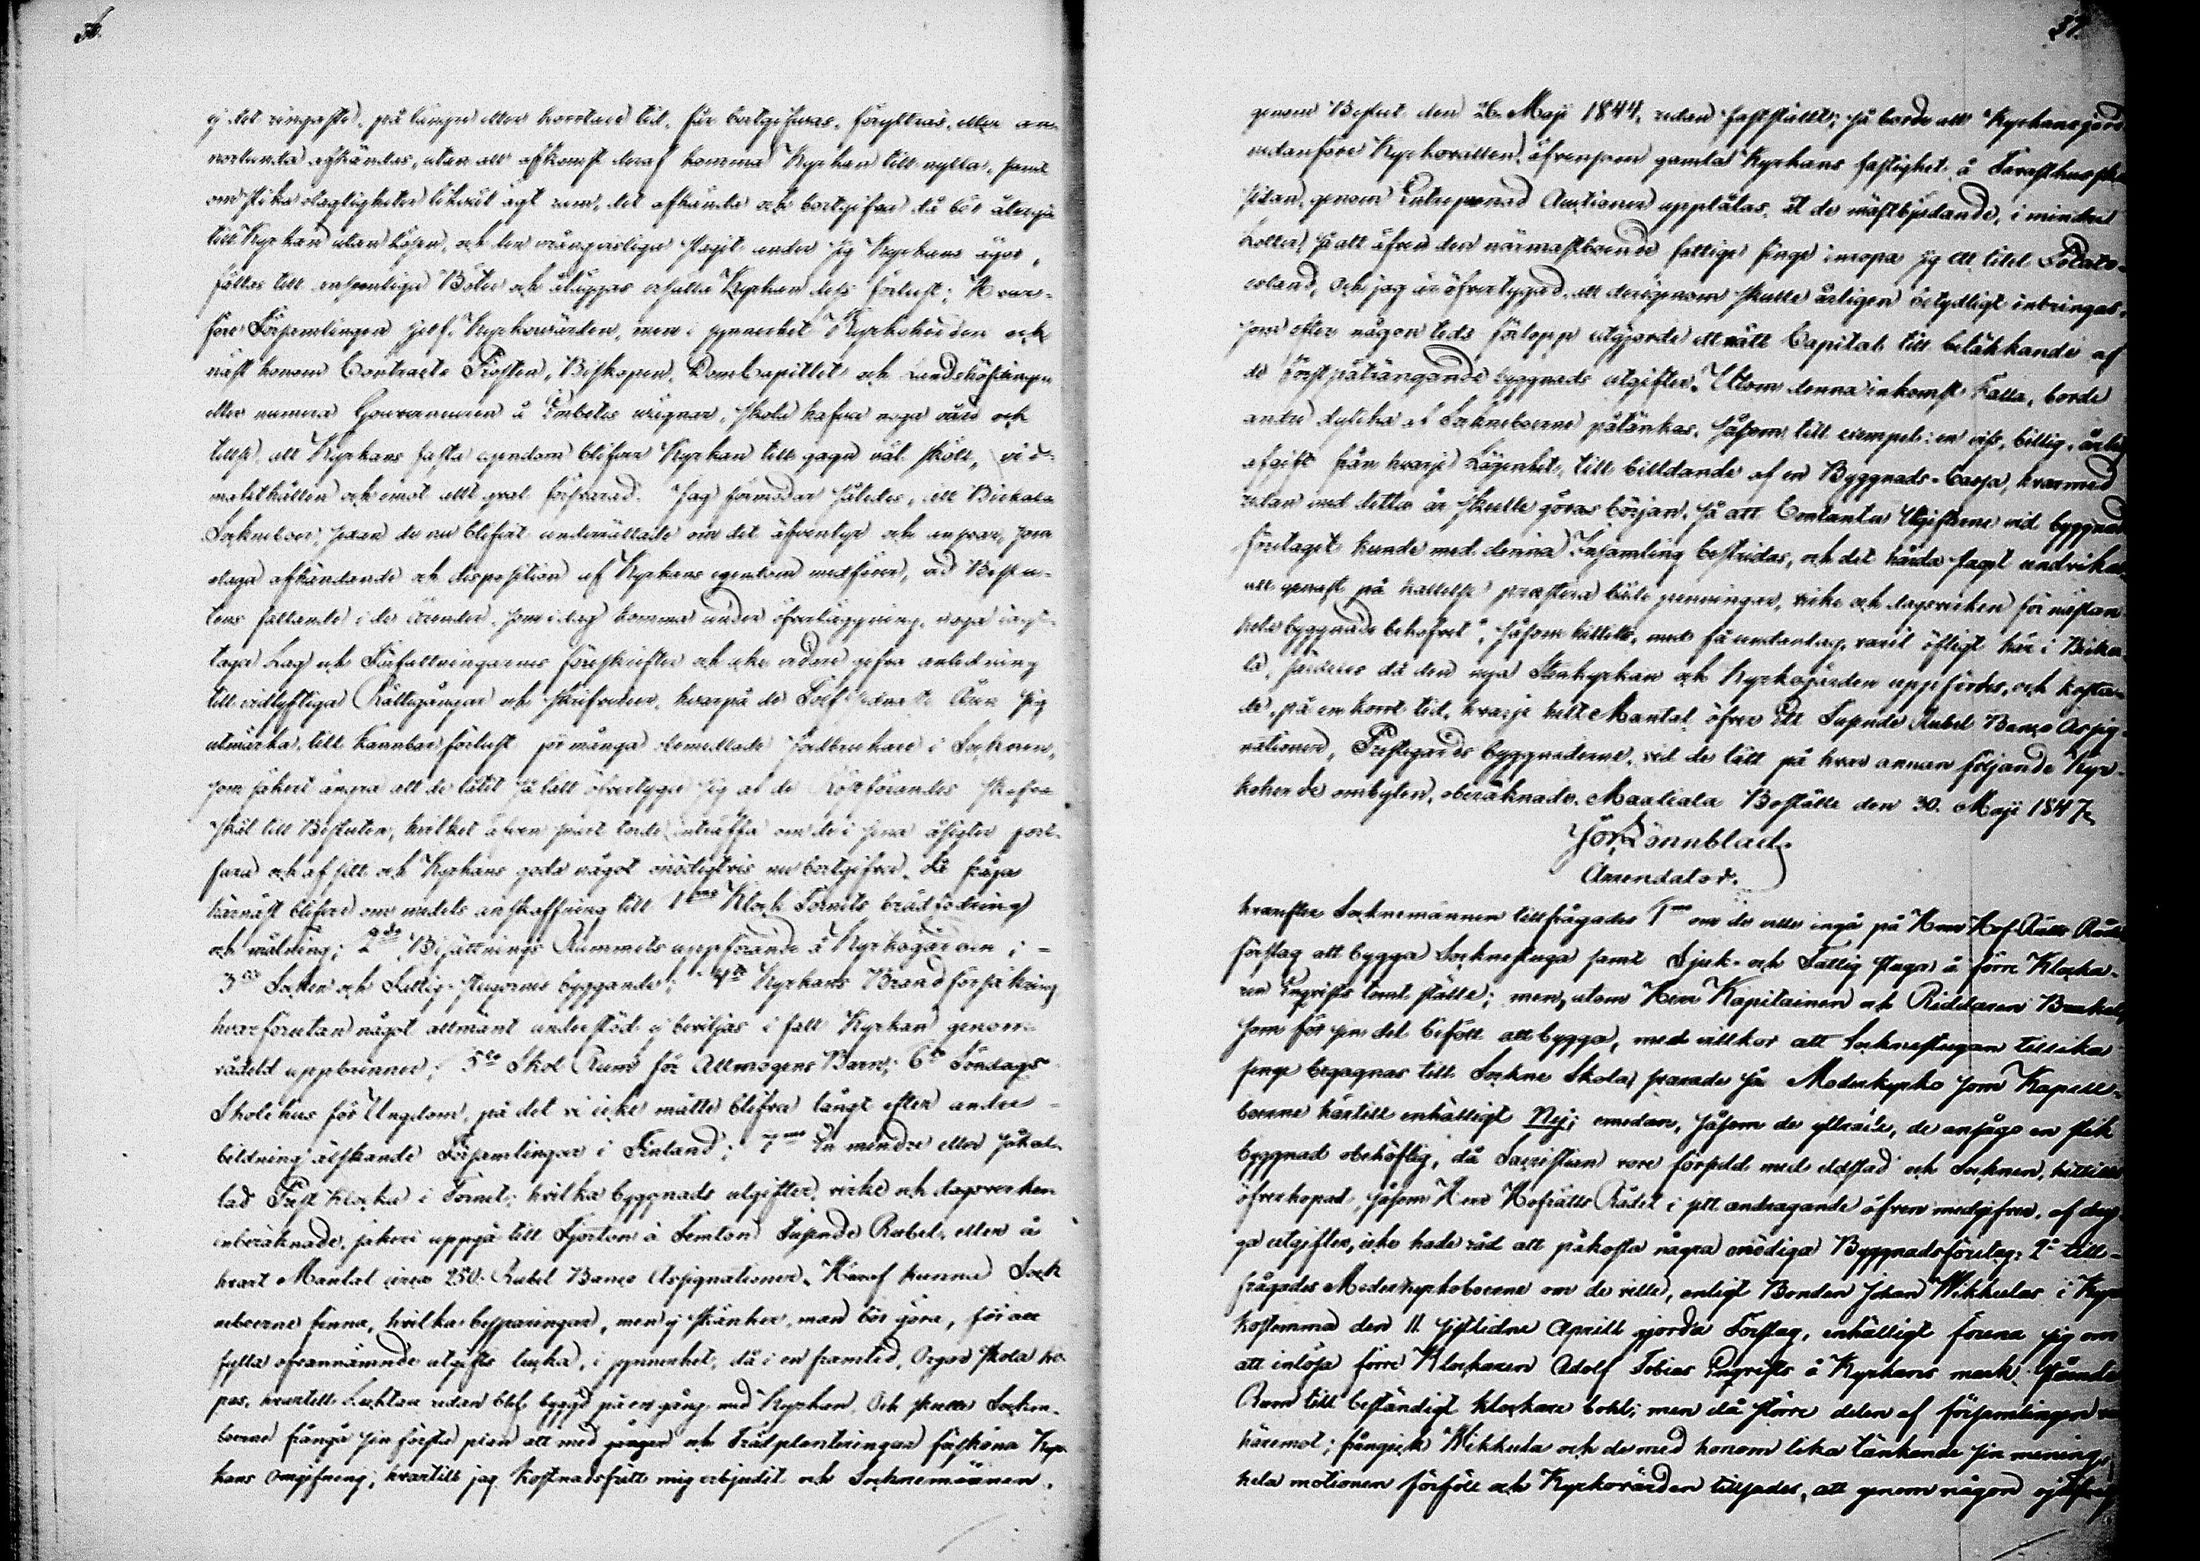 36.
ej det ringaste, på längre eller kortare tid, får bortgifvas, föryttras, eller an-
norlunda afhändas, utan att afkomst deraf komma Kyrkan till nytta, samt
om slika olagligheter likväl ägt rum, det afhända och bortgifna då bör återgå
till Kyrkan utan lösen, och den orångvisliga slagit under sig Kyrkans ägor,
fällas till ansenliga Böter och åläggas ersätta Kyrkan dess förlust; Hvar-
före Församlingen sjelf, Kyrkovärden, men i synnerhet Kyrkoherden och
näst honom Contracts Prosten, Biskopen, DomCapitlet och Landshöfdingen
eller numera Gouverneuren å Embetes vägnar, skola hafva noga vård och
tillse, att Kyrkans fasta egendom blifver Kyrkan till gagn väl skött, vid
makthållen och emot allt qval försvarad. Jag förmodar således, att Birkala
Sockneboer, sedan de nu blifvit underrättade om det äfventyr och ansvar, som
olaga afhändande och disposition af Kyrkans egendom medförer, vid Beslu-
tens fattande i de ärender, som idag komma under öfverläggning, noga iagt-
taga Lag och Författningarnes föreskrifter och icke vidare gifva anledning
till vidlyftiga Rättegångar och skrifvelser, hvarpå de Tolf sednaste Åren sig
utmärka, till kännbar förlust för många obemedlade Jordbrukare i Socknen,
som säkert ångra att de låtit så lätt öfvertyga sig af de Röstförandes
skäl till Besluten, hvilket äfven snart torde inträffa om de i sina åsigter fort-
fara och af sitt och Kyrkans goda något onödigtvis nu bortgifva. Då fråga
härnäst blifver om medels anskaffning till 1mo Klock Tornets brädfodring
och målning; 2do Bisättnings Rummets uppförande å Kyrkogården; -
3tio Socken och Fattig-stugornes byggande; 4to Kyrkans Brandförsäkring
hvarförutan något allmänt understöd ej beviljas i fall Kyrkan genom
vådeld uppbrinner; 5to Skol Rum för Allmogens Barn; 6to Söndags
Skolehus för Ungdom, på det vi icke måtte blifva långt efter andre
bildning älskande Församlingar i Finland; 7mo En mindre eller så kal-
lad Prest Klocka i Tornet; hvilka byggnads utgifter, virke och dagsverken
inberäknade, säkert uppgå till Fjorton à Femton Tusende Rubel, eller å
hvart Mantal circa 250. Rubel Banco Assignationer. Häraf kunna Sock-
neboerne finna, hvilka besparingar, men ej skänker, man bör göra, för att
fylla ofvannämnde utgifts lucka, i synnerhet, då i en framtid, Orgor skola kö-
pas, hvartill Lucktan redan blef byggd på en gång med Kyrkan. Och skulle Sockne-
boerne frångå sin första plan att med gångar och Trädplanteringar försköna Kyr-
kans omgifning, hvartill jag kostnadsfritt mig erbjudit och Socknemännen,
37.
genom Beslut den 26. Maji 1844, redan fastställt; så borde all Kyrkans jord
nedanföre Kyrkovallen, äfvensom gamla Kyrkans fastighet å Tavasthusska
sidan, genom Entreprenad Auctioner upplåtas, åt de mästbjudande, i mindre
Lotter, så att äfven den närmastboende fattige finge inropa sig ett litet Potato-
esland, Och jag är öfvertygad, att derigenom skulle årligen betydligt inbringas,
som efter någon tids förlopp utgjorde ett nätt Capital till betäckande af
de först påträngande byggnads utgifter. Utom denna inkomst Källa, borde
andre dylika af Sockneboerne påtänkas. Såsom till exempel: en viss, billig, årlig
afgift från hvarje Lägenhet, till bildande af en Byggnads-Cassa, hvarmed
redan med detta år skulle göras början, så att Contanta Utgifterne vid byggnads
företaget kunde med denna Insamling bestridas, och det hårda slaget undvikas
att genast på kallelse præstera både penningar, virke och dagsverken för nästan
hela byggnads behofvet, såsom hittills, med få undantag, varit öfligt här i Birka-
la, särdeles då den nya Stenkyrkan och Kyrkogården uppfördes, och kosta-
de, på en kort tid, hvarje helt Mantal öfver Ett Tusende Rubel Banco Assig-
nationer, Prestegårds byggnaderne, vid de tätt på hvar annan följande Kyr-
koherde ombyten, oberäknade. Maatiala Boställe den 30. Maji 1847.
Jör. Lönnblad,
Arrendator.
hvarefter Socknemännen tillfrågades 1mo om de ville ingå på Herr Hof Rätts Rådets
förslag att bygga Socknestuga samt Sjuk- och Fattig stuga å förre Klocka-
ren Engrists tomt ställe; men, utom Herr Kapitainen och Riddaren
som för sin del biföll att bygga, med villkor att Socknestugan tillika
finge begagnas till Sockne Skola, svarade så Moderkyrko som Kapell-
boerne härtill enhälligt Nej; emedan, såsom de yttrade, de ansågo en slik
byggnad obehöflig, då Sacristian vore försedd med eldstad och Socknen, hittills
öfverhopad, såsom Herr Hofrätts Rådet i sitt andragande äfven medgifver, af dry-
ga utgifter, icke hade råd att påkosta några onödiga Byggnadsföretag; 2o till-
frågades Moderkyrkoboerne om de ville, enligt Bonden Johan Mikkulas i Kyr-
kostemma den 11. sistlidne Aprill gjorda Förslag, enhälligt förena sig om
att inlösa förre Klockaren Adolf Tobias Engrists å Kyrkans mark stående
Rum till beständigt klockare bohl; men då större delen af församlingen var
häremot; frångick Mikkula och de med honom lika tänkande sin mening,
hela motionen förföll och Kyrkovärden tillsades, att genom någon